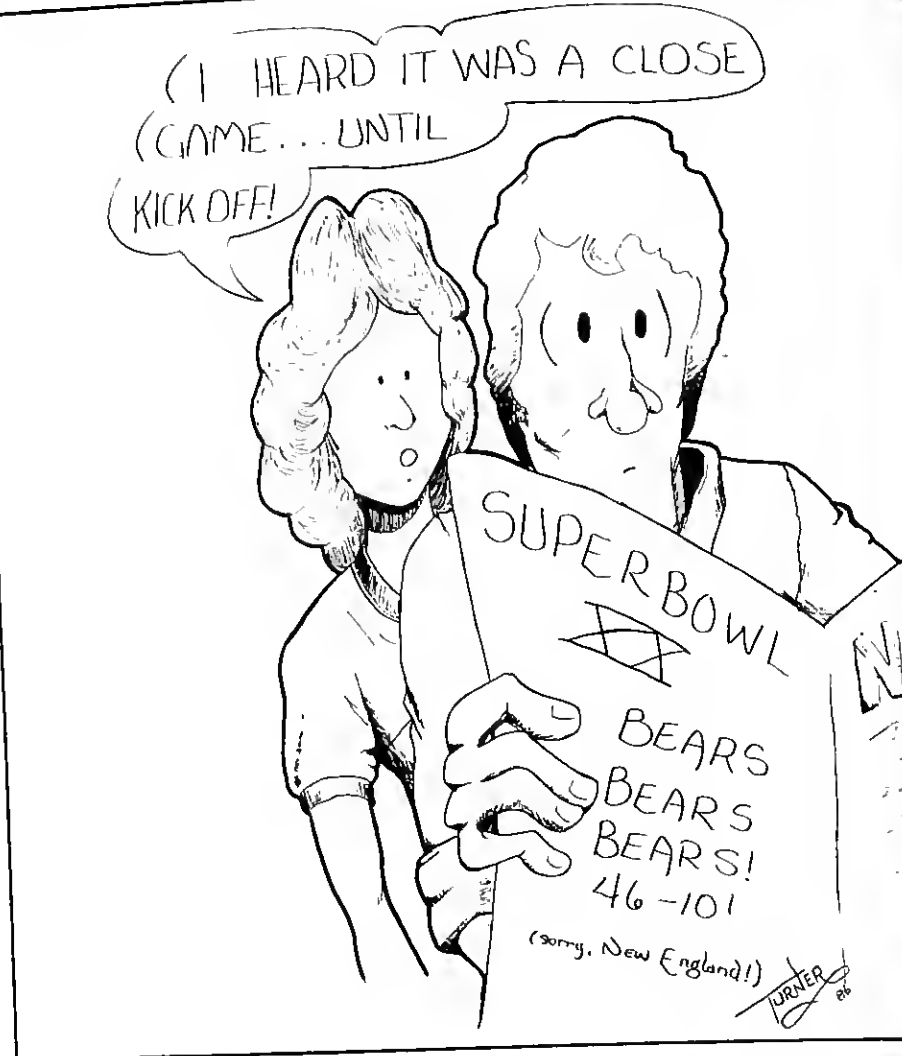 I HEARD IT WAS A CLOSE
GAME... UNTIL
KICK OFF!
SUPERBOWL
XX
BEARS
BEARS
BEARS!
46-10!
(sorry, New England!)
TURNER
86
N